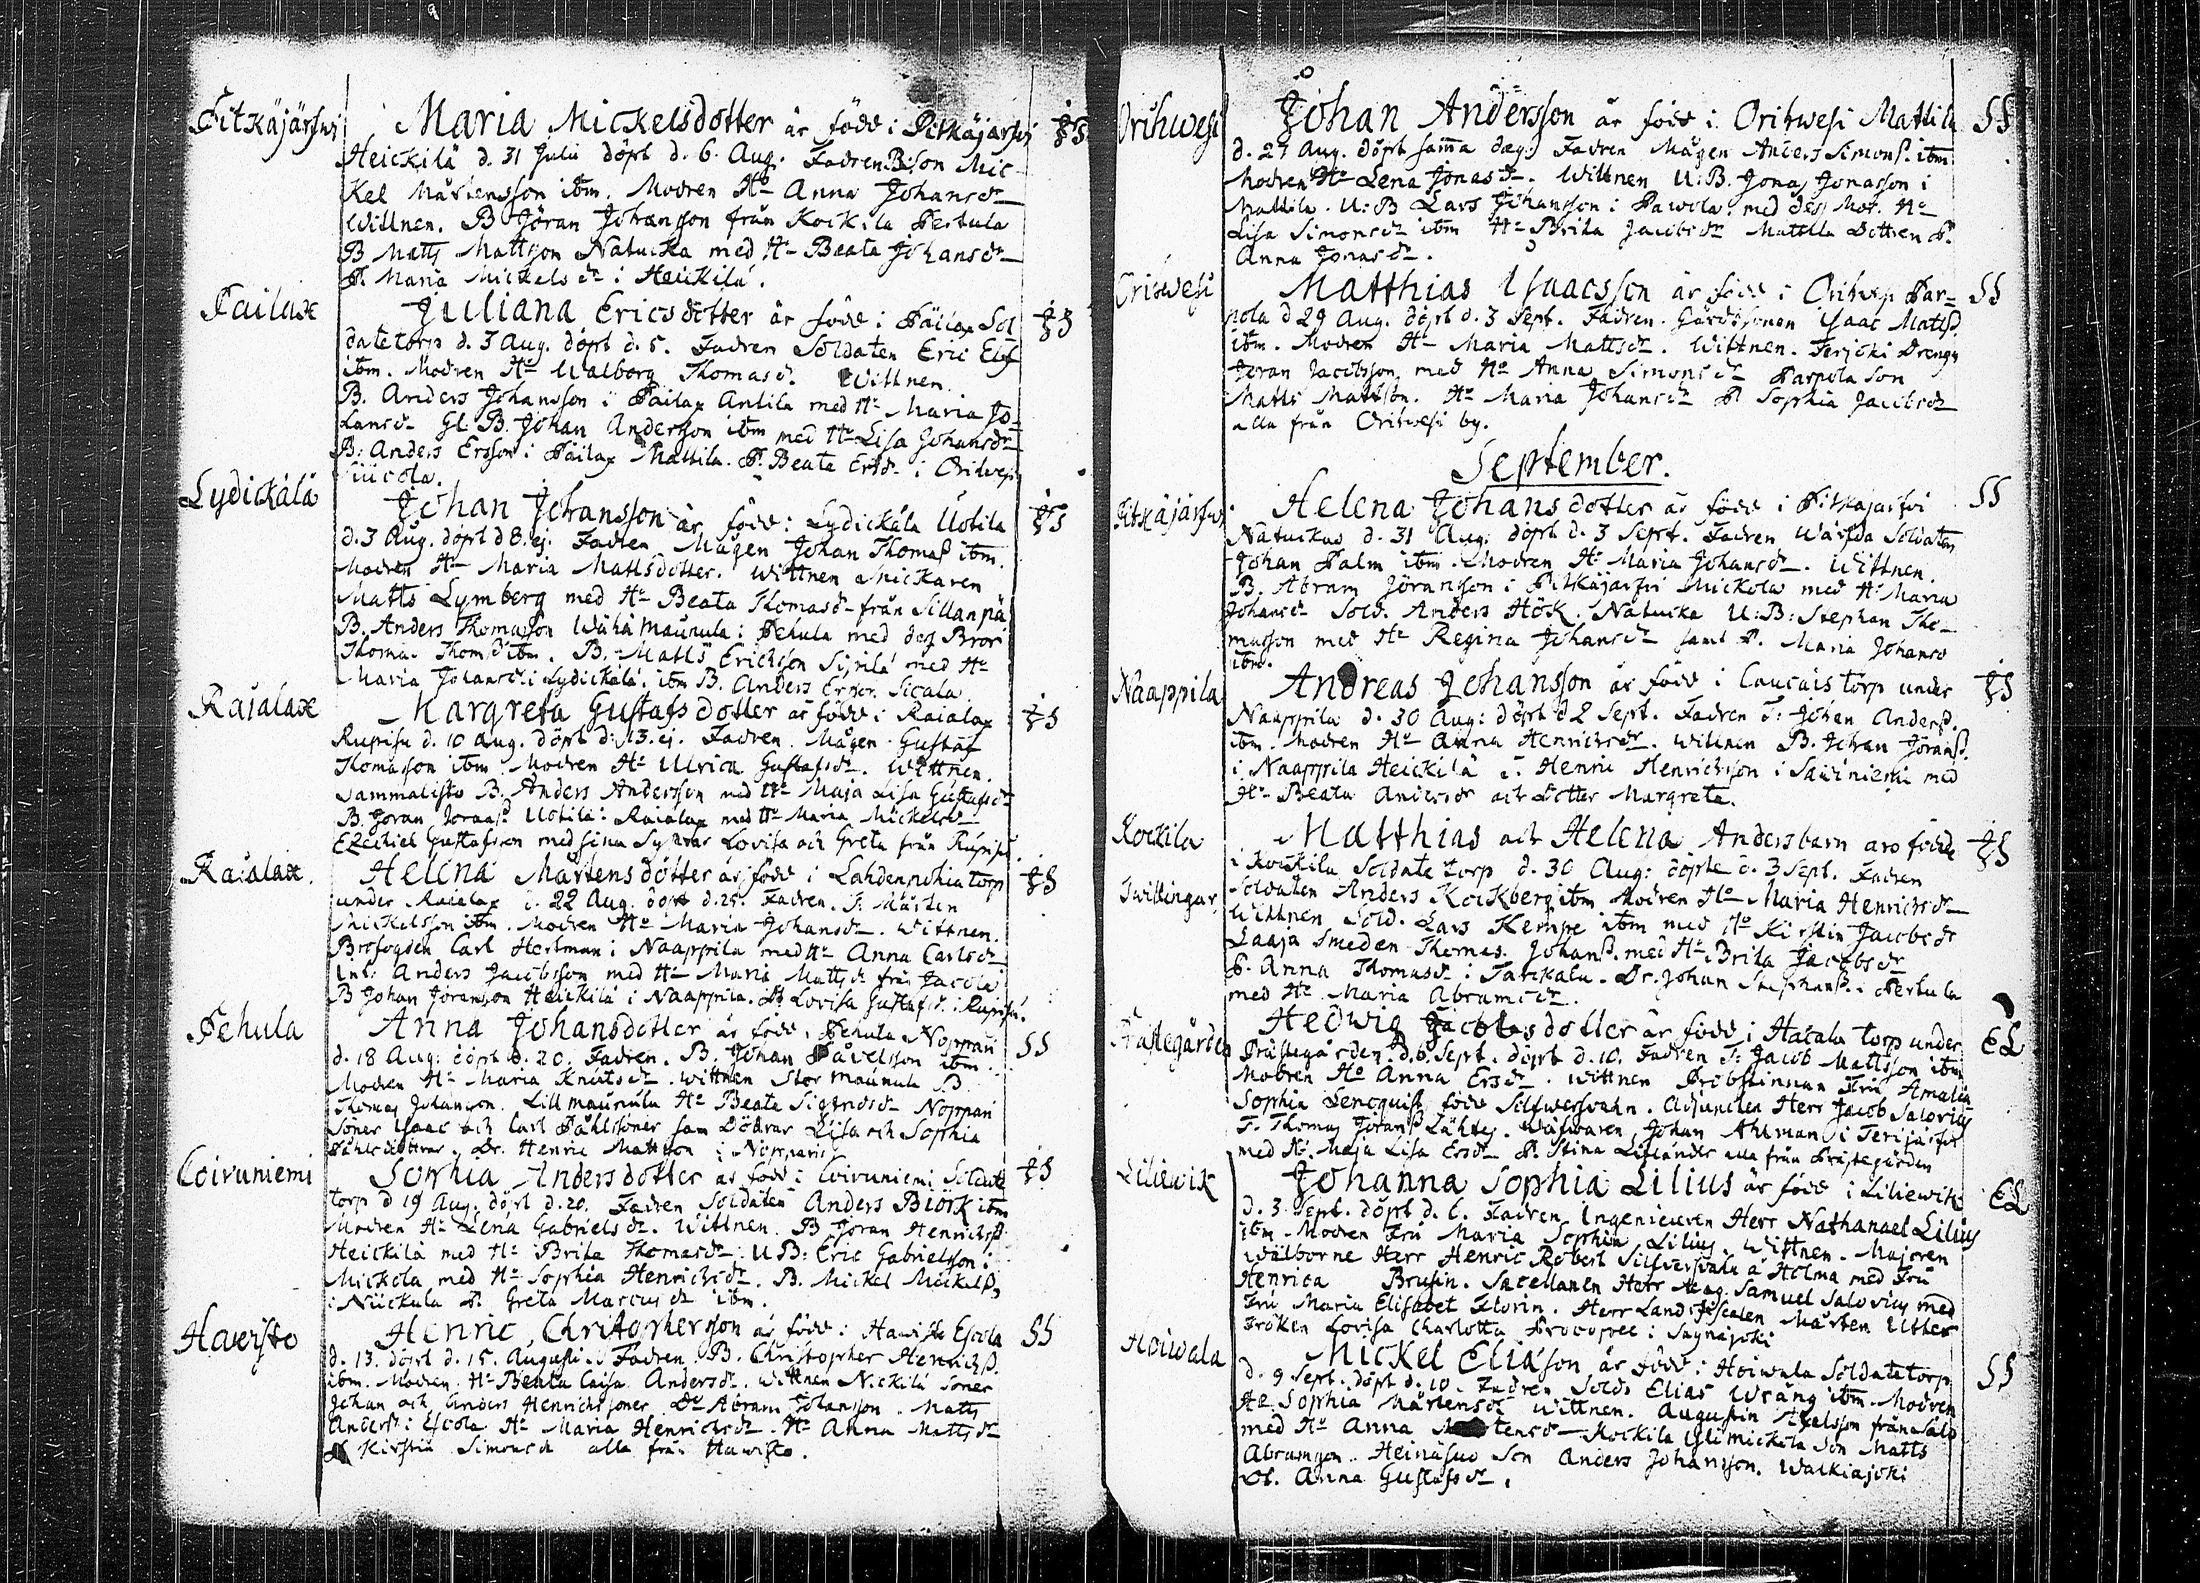 Pitkäjärfwi
Maria Mickelsdotter är född i Pitkäjärfwi
Heickilä d. 31 Julii döpt d. 6. Aug. Fadren B:son Mic-
kel Mårtensson ibm. Modren Ho Anna Johansdr
Wittnen. B Jöran Johansson från Kockila Pertula
B Matts Mattsson Natucka med Ho Beata Johansdr
P. Maria Mickelsdr i Heickilä.
Pailax
Juliana Ericsdotter är född i Päilax Sol
datetorp d. 3 Aug. döpt d. 5. Fadren Soldaten Eric Elf
ibm. Modren Ho Walborg Thomasdr. Wittnen.
B. Anders Johansson i Päilax Antila med Ho Maria Jo-
hansdr Gl. B. Johan Andersson ibm med Ho Lisa Johansdr
B. Anders Ersson i Päilax Mattila. P. Beata Ersdr i Orihwesi
Lydickälä
Johan Johansson är född i Lydickälä Uotila
d. 3 Aug. döpt d 8. ej. Fadren Mågen Johan Thomasß ibm.
Modren Ho Maria Mattsdotter. Wittnen Snickaren
Matts Lymberg med Ho Beata Thomasdr från Sillanpä
B. Anders Thomasson Wähä Maunula i Pehula med dess Bror
Thomas Thomß ibm. B. Matts Erichsson Sipilä med Ho
Maria Johansdr i Lydickälä. ibm B. Anders Ersson.
Raialax
Margreta Gustafsdotter är född i Raialax
Rupisu d. 10 Aug. döpt d. 13. ej. Fadren Mågen Gustaf
Thomasson ibm Modren Ho Ulrica Gustafsdr. Wittnen.
Sammalisto B. Anders Andersson med Ho Maja Lisa Gustafsdr
B. Jöran Joransß Uotila i Raialax med Ho Maria Mickelsdr
Ezechiel Gustafsson med sina Systrar Lovisa och Greta från Rupisu
Raialax.
Helena Mårtensdotter är född i Lahdenpohia torp
under Raialax d. 22 Aug. döpt d. 25. Fadren T. Mårten
Mickelsson ibm. Modren Ho Maria Johansdr. Wittnen.
Brofogden Carl Hertman i Naappila med Ho Anna Carlsdr
Anders Jacobsson med Ho Maria Mattsdr från Jacola
B Johan Jöransson Heickilä i Naappila. P. Lovisa Gustafsdr. i Rupisu.
Pehula
SS
Anna Johansdotter är född i Pehula Noppari
d. 18 Aug: döpt d. 20. Fadren. B. Johan Påvelsson ibm.
Modren Ho Maria Knutsdr. Wittnen Stor Maunula B
Thomas Johansson. Lill maunula Ho Beata Sigfridsdr Noppari
Söner Isaac och Carl Påhlssöner sam Dödrar Lisa och Sophia
Påhlsdöttrar. Dr. Henric Mattsson i Noppari
Coivuniemi
Sophia Andersdotter är född i Coivuniemi Soldate
torp d 19 Aug. döpt d. 20. Fadren Soldaten Anders Biörk ibm
Modren Ho Lena Gabrielsdr. Wittnen. B Jöran Henrichß
Heickilä med Ho Brita Thomasdr. U.B: Eric Gabrielsson i
Mickola med Ho Sophia Henrichsdr. B. Mickel Mickelß,
i Niickula P. Greta Marcusdr ibm.
Hawisto
SS
Henric Christophersson är född i Hawisto Escola
d. 13. döpt d. 15. Augusti. Fadren B. Christopher Henrichß.
ibm. Modren Ho Beata Caisa Andersdr. Wittnen Nickilä Söner
Johan och Anders Henrichssöner. Dr Abram Johansson. Matts
Andersß i Escola Ho Maria Henrichsdr. Ho Anna Mattsdr
P. Kirstin Simonsdr alla från Hawisto.
Orihwesi
SS
Johan Andersson är född i Orihwesi Mattila
d. 27 Aug. döpt samma dag. Fadren Mågen Anders Simonß. ibm
Modren Ho Lena Jonasdr. Wittnen U:B. Jonas Jonasson i
Mattila. U:B Lars Johansson i Pawola. med dess Mor. Ho
Lisa Simonsdr ibm Ho Brita Jacobsdr Mattila Dottren P.
Anna Jonasdr.
Orihwesi
SS
Matthias Isaacsson är född i Orihwesi Par-
pola d 29 Aug. döpt d. 3 Sept. Fadren. Gårdssonen Isaac Mattsß.
ibm. Modren Ho Maria Mattsdr. Wittnen. Drengen
Jöran Jacobsson med Ho Anna Simonsdr Parpola Son
Matts Mattson. Ho Maria Johansdr P. Sophia Jacobsdr
alla från Orihwesi by.
September.
Pitkäjärfwi
SS
Helena Johansdotter är född i Pitkäjärfwi
Natuckas d. 31 Aug: döpt d. 3 Sept. Fadren Wärfda Soldaten
Johan Palm ibm. Modren Ho Maria Johansdr. Wittnen.
B. Abram Jöransson i Pitkäjärfwi Mickola med Ho Maria
Johansdr Sold. Anders Hök. Natucka U:B: Stephan Tho-
masson med Ho Regina Johansdr samt P. Maria Johansd
ibm.
Naappila
Andreas Johansson är född i Caucais torp under
Naappila d. 30 Aug: döpt d 2 Sept. Fadren T: Johan Andersß.
ibm. Modren Ho Anna Henrichsdr. Wittnen B. Johan Jöransß.
i Naappila Heickilä T. Henric Henrichsson i Sawiniemi med
Ho Beata Andersdr och Dotter Margreta.
Kockila
Twillingar
Matthias och Helena Andersbarn äro födde
i Kockila Soldate torp d. 30 Aug: döpte d. 3 Sept. Fadren
Soldaten Anders Kockberg ibm Modren Ho Maria Henrichsdr
Wittnen Sold. Lars Kempe ibm med Ho Kirstin Jacobsdr
Laaja Smeden Thomas Johansß. med Ho Brita Jacobsdr
P. Anna Thomasdr i Tarckala. Dr. Johan Stephansß. i Pertula
med Ho Maria Abramsdr.
Prästegården
EL
Hedwig Jacobsdotter är född i Hacala torp under
Prästegården. d. 6. Sept. döpt d. 10. Fadren T: Jacob Mattsson ibm
Modren Ho Anna Ersdr. Wittnen Probstinnan Fru Amalia
Sophia Lencquist född Silfwersvahn. Adjuncten Herr Jacob Salovius
T. Thomas Joransß Lähtes. Johan Ahlman i Terijärfwi
med Ho. Maja Lisa Ersdr P. Stina Liflander alla från Prästegården
Liliewik
EL
Johanna Sophia Lilius är född i Liliewik
d. 3. Sept. döpt d. 6. Fadren Ingenieuren Herr Nathanael Lilius
ibm. Modren Fru Maria Sophia Lilius. Wittnen. Majoren
Wälborne Herr Henric Robert Silfversvahn å Holma med Fru
Henrica Brusin. Sacellanen Herr Mag. Samuel Salovius med
Fru Maria Elisabet Florin. Herr Landsfiscalen Mårten Uther
Fröken Lovisa Charlotta Procopee i Saynäjoki
Hoiwala
SS
Mickel Eliason är född i Hoiwala Soldatetorp
d. 9 Sept. döpt d. 10. Fadren Sold. Elias Wrång ibm. Modren
Ho Sophia Mårtensdr Wittnen. Augustin Axelsson från Salo
med Ho Anna Mårtensdr Kockila Ylimickila Son Matts
Abramsson. Heinäsuo Son Anders Johansson. Walkiajoki
P. Anna Gustafsdr.